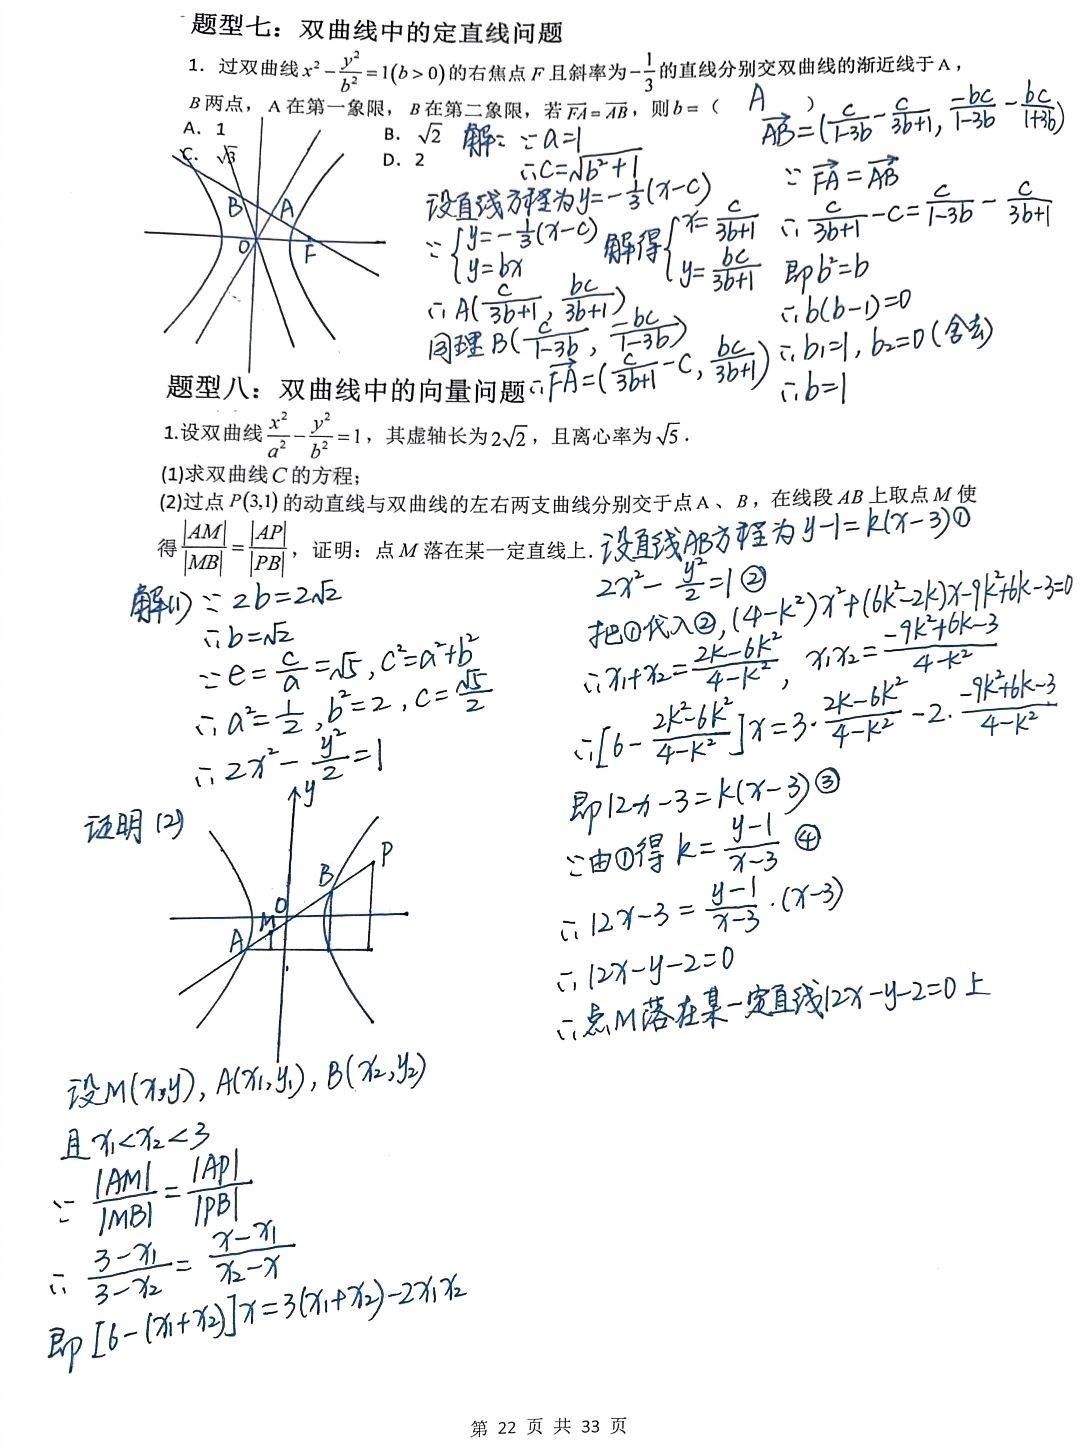 题型七：双曲线中的定直线问题
1. 过双曲线 x² - y²/b² = 1(b > 0) 的右焦点 F 且斜率为 -1/3 的直线分别交双曲线的渐近线于 A，
B 两点，A 在第一象限，B 在第二象限，若 FA = AB，则 b = （ A ）
A. 1
B. √2
C. √3
D. 2
B A O F
解: ∵ a=1
∴ c=√(b²+1)
设直线方程为 y=-1/3(x-c)
∵ { y=-1/3(x-c) y=bx 解得 { x=c/(3b+1) y=bc/(3b+1)
∴ A(c/(3b+1), bc/(3b+1))
同理 B(c/(1-3b), -bc/(1-3b))
∴ FA=(c/(3b+1)-c, bc/(3b+1))
AB=(c/(1-3b)-c/(3b+1), -bc/(1-3b)-bc/(1+3b))
∵ FA=AB
∴ c/(3b+1)-c=c/(1-3b)-c/(3b+1)
即 b²=b
∴ b(b-1)=0
∴ b₁=1, b₂=0 (舍去)
∴ b=1
题型八：双曲线中的向量问题
1.设双曲线 x²/a² - y²/b² = 1，其虚轴长为 2√2，且离心率为 √5.
(1)求双曲线 C 的方程;
(2)过点 P(3,1) 的动直线与双曲线的左右两支曲线分别交于点 A、B，在线段 AB 上取点 M 使
得 |AM|/|MB| = |AP|/|PB|，证明：点 M 落在某一定直线上.
解(1) ∵ 2b=2√2
∴ b=√2
∵ e=c/a=√5, c²=a²+b²
∴ a²=1/2, b²=2, c=√5/2
∴ 2x²-y²/2=1
证明(2)
y P B O M A
设M(x,y), A(x₁,y₁), B(x₂,y₂)
且 x₁<x₂<3
∵ |AM|/|MB|=|AP|/|PB|
∴ (3-x₁)/(3-x₂)=(x-x₁)/(x₂-x)
即 [6-(x₁+x₂)]x=3(x₁+x₂)-2x₁x₂
设直线AB方程为 y-1=k(x-3)①
2x²-y²/2=1②
把①代入②, (4-k²)x²+(6k²-2k)x-9k²+6k-3=0
∴ x₁+x₂=(2k-6k²)/(4-k²), x₁x₂=(-9k²+6k-3)/(4-k²)
∴ [6-(2k²-6k²)/(4-k²)]x=3·(2k-6k²)/(4-k²)-2·(-9k²+6k-3)/(4-k²)
即12x-3=k(x-3)③
∵由①得 k=(y-1)/(x-3) ④
∴ 12x-3=(y-1)/(x-3)·(x-3)
∴ 12x-y-2=0
∴点M落在某一定直线12x-y-2=0上
第 22 页 共 33 页